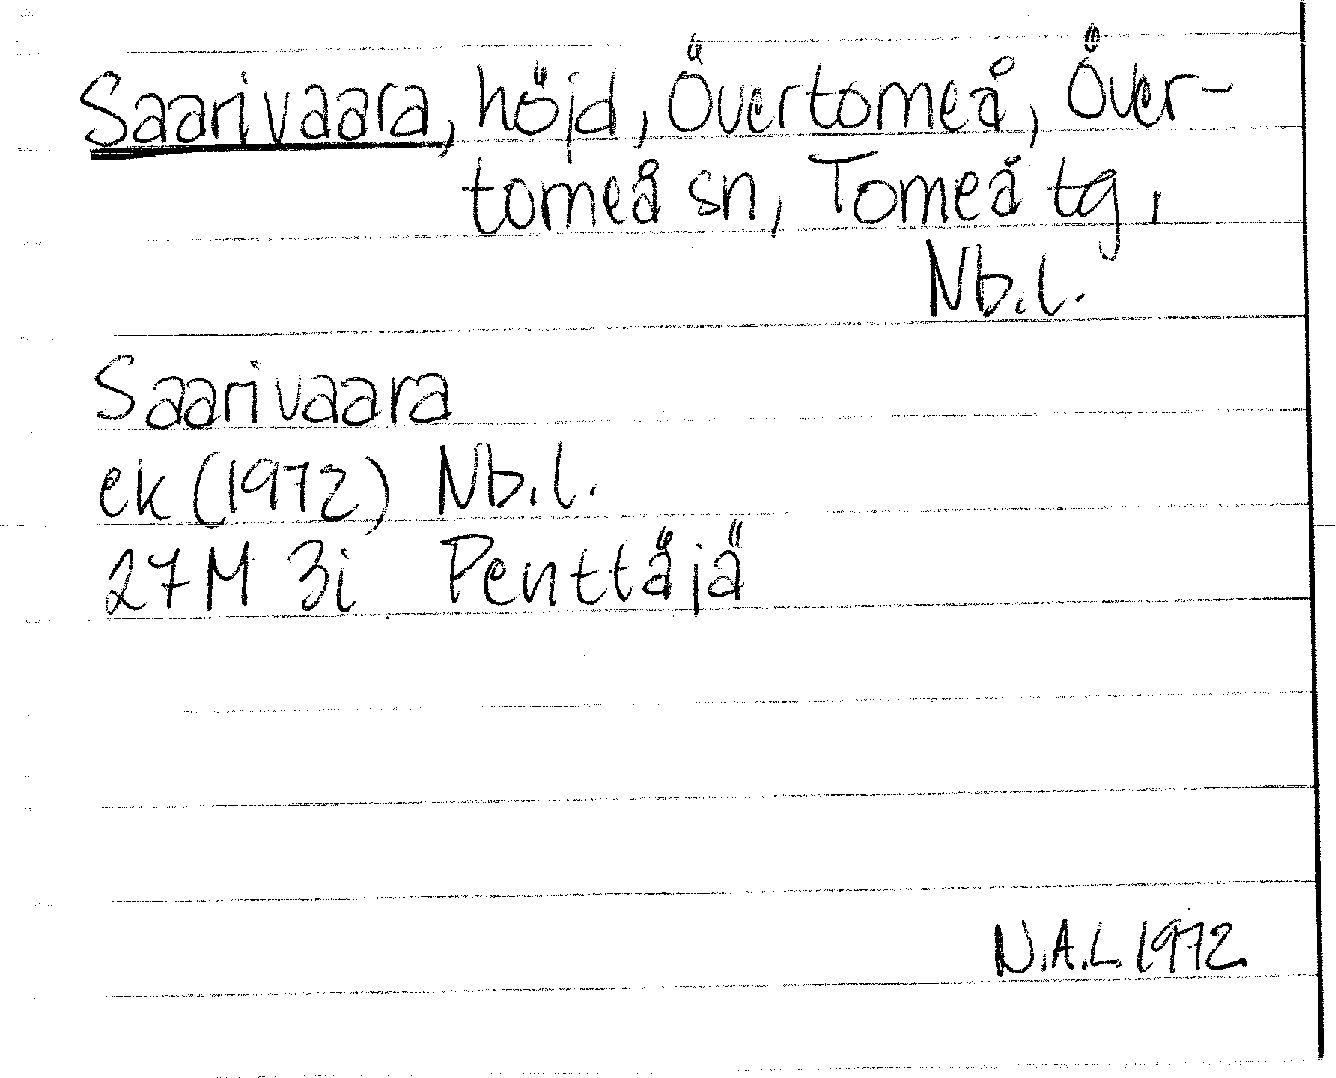 Saarivaara, höjd, Övertorneå, Över-
torneå sn, Torneå tg,
Nb.l.
Saarivaara
ek (1972) Nb.l.
27M 3i Penttäjä
N.A.L. 1972